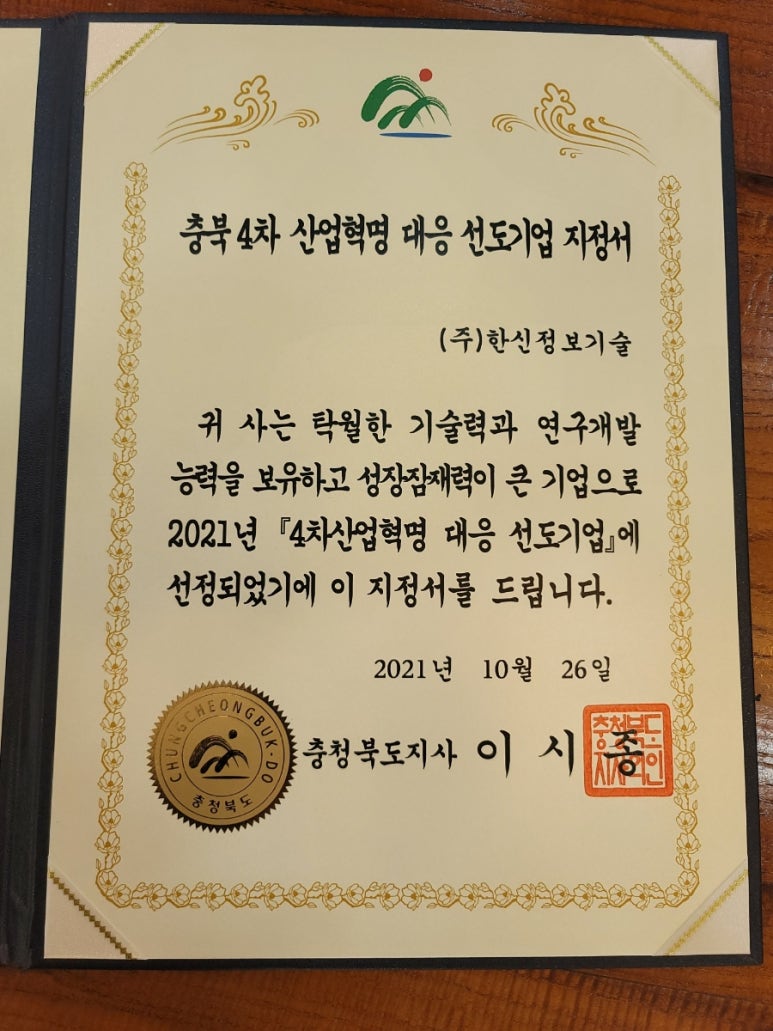 충북 4차 산업혁명 대응 선도기업 지정서
(주)한신정보기술
귀 사는 탁월한 기술력과 연구개발
능력을 보유하고 성장잠재력이 큰 기업으로
2021년 『4차산업혁명 대응 선도기업』에
선정되었기에 이 지정서를 드립니다.
2021년 10월 26일
CHUNGCHEONGBUK-DO
충청북도
충청북도지사 이 시 종
충청북도
지사의인